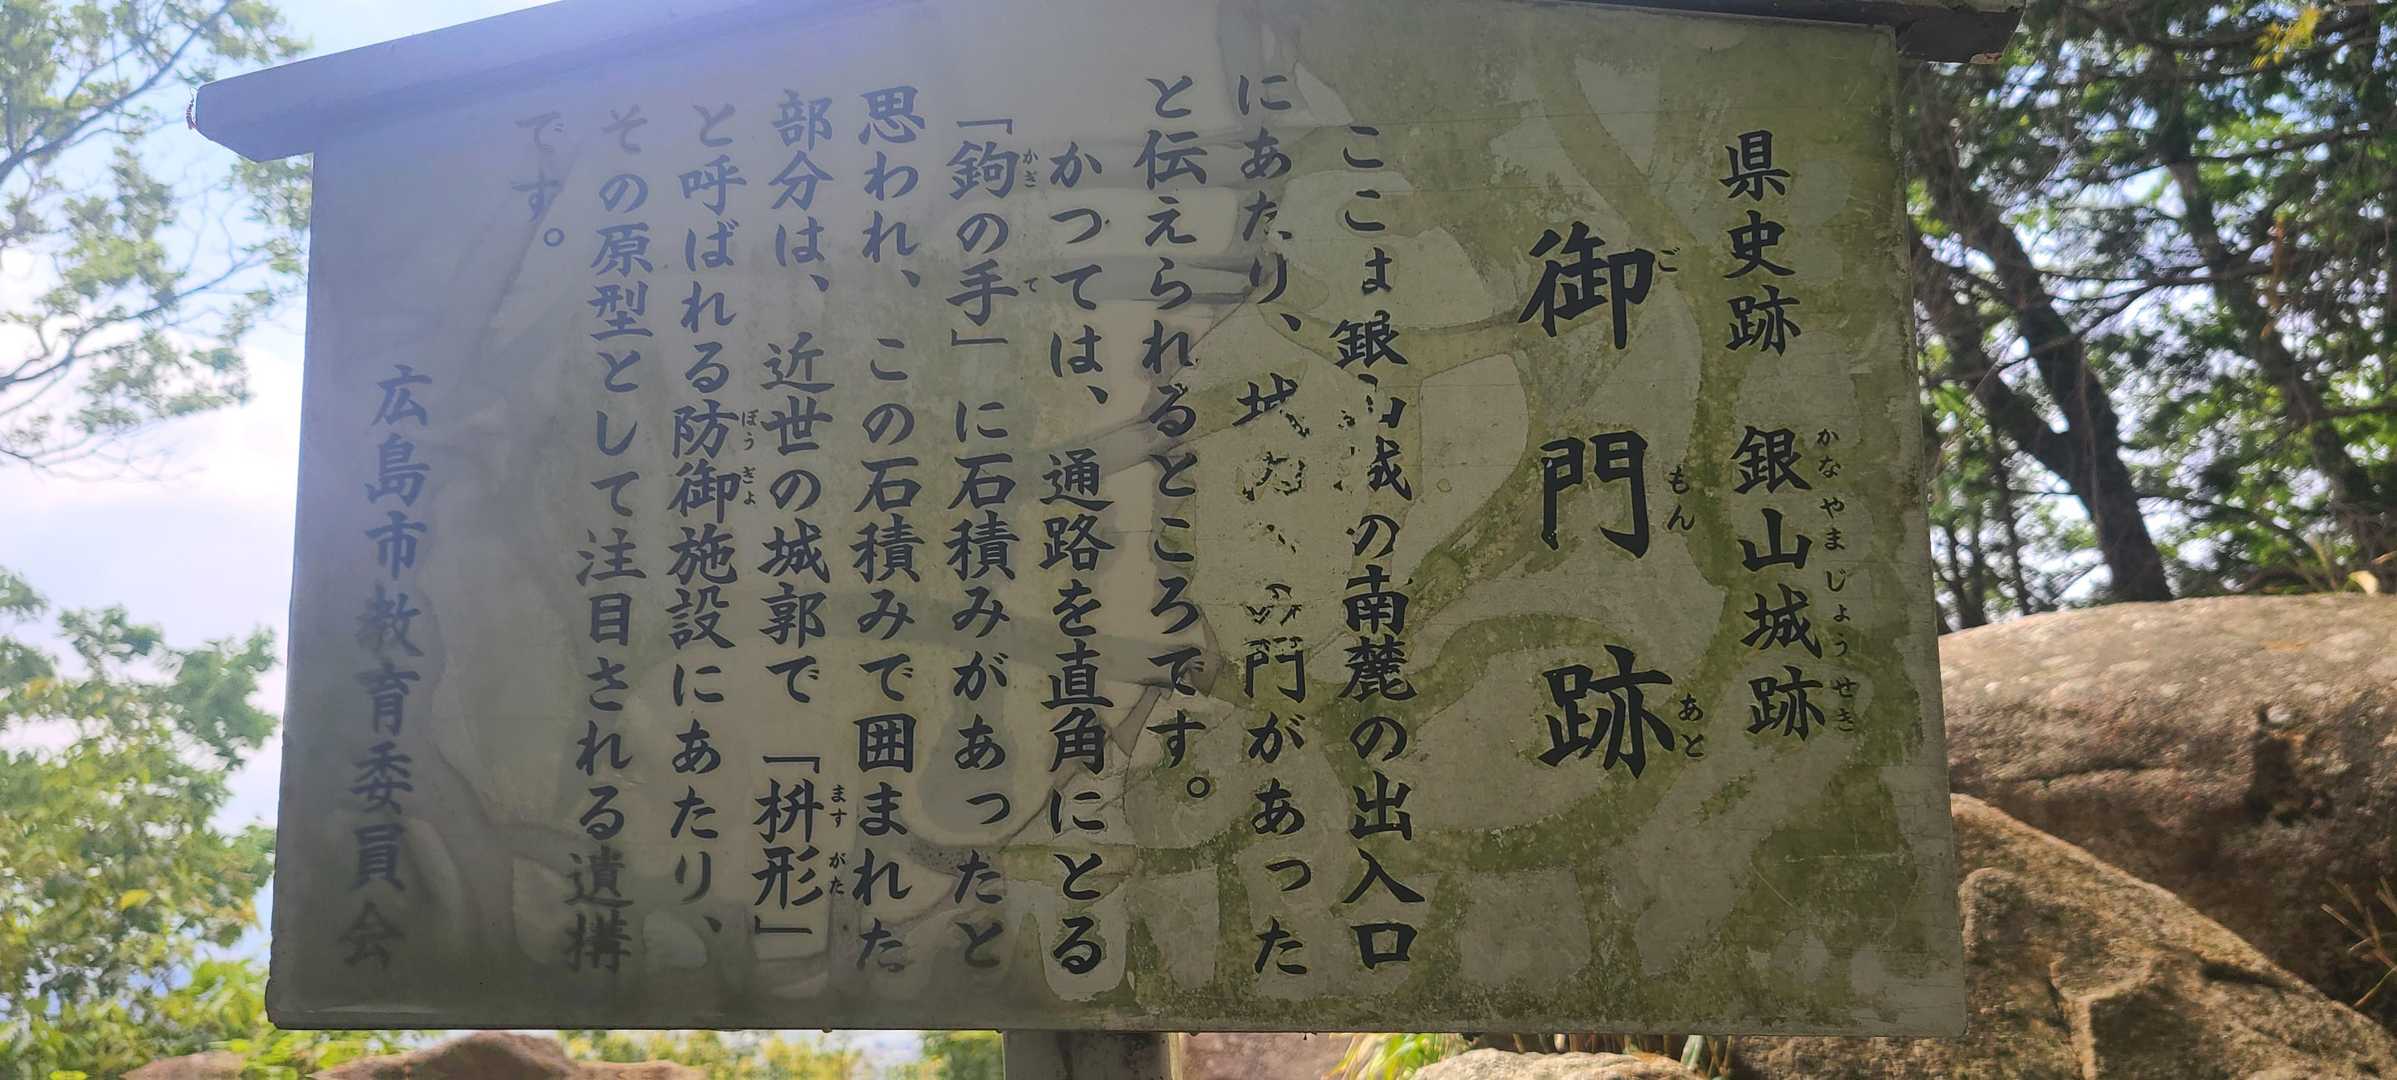 県史跡 銀山城跡
かなやまじょうせき
御門跡
ごもんあと
ここは銀山城の南麓の出入口
にあたり、城内 の門があった
と伝えられるところです。
かつては、通路を直角にとる
「鉤の手」に石積みがあったと
かぎ て
思われ、この石積みで囲まれた
部分は、近世の城郭で「枡形」
ますがた
と呼ばれる防御施設にあたり、
ぼうぎょ
その原型として注目される遺構
です。
広島市教育委員会